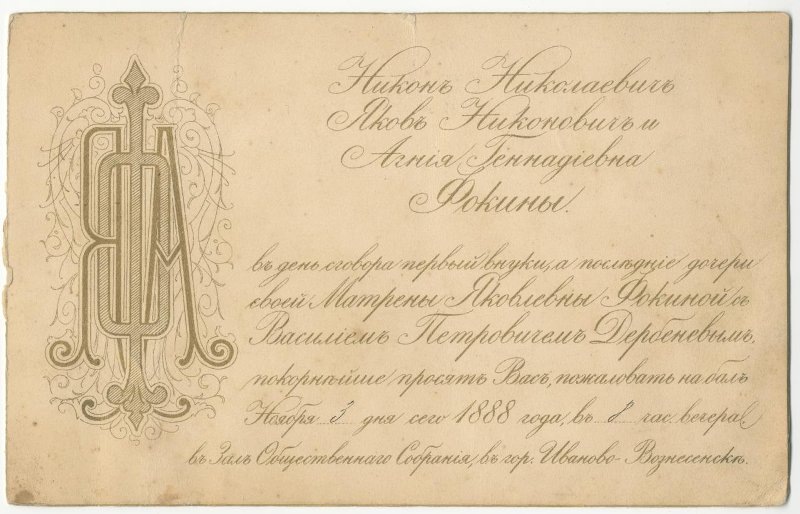 Никонъ Николаевичъ
Яковъ Никоновичъ и
Агнія Геннадіевна
Фокины.
въ день сговора первый внуки, а послѣдніе дочери
своей Матрены Яковлевны Фокиной съ
Василіемъ Петровичемъ Дербеневымъ,
покорнѣйше просятъ Васъ, пожаловать на балъ
Ноября 3 дня сего 1888 года, въ 8 час. вечера
въ Залъ Общественнаго Собранія, въ гор. Иваново-Вознесенскѣ.